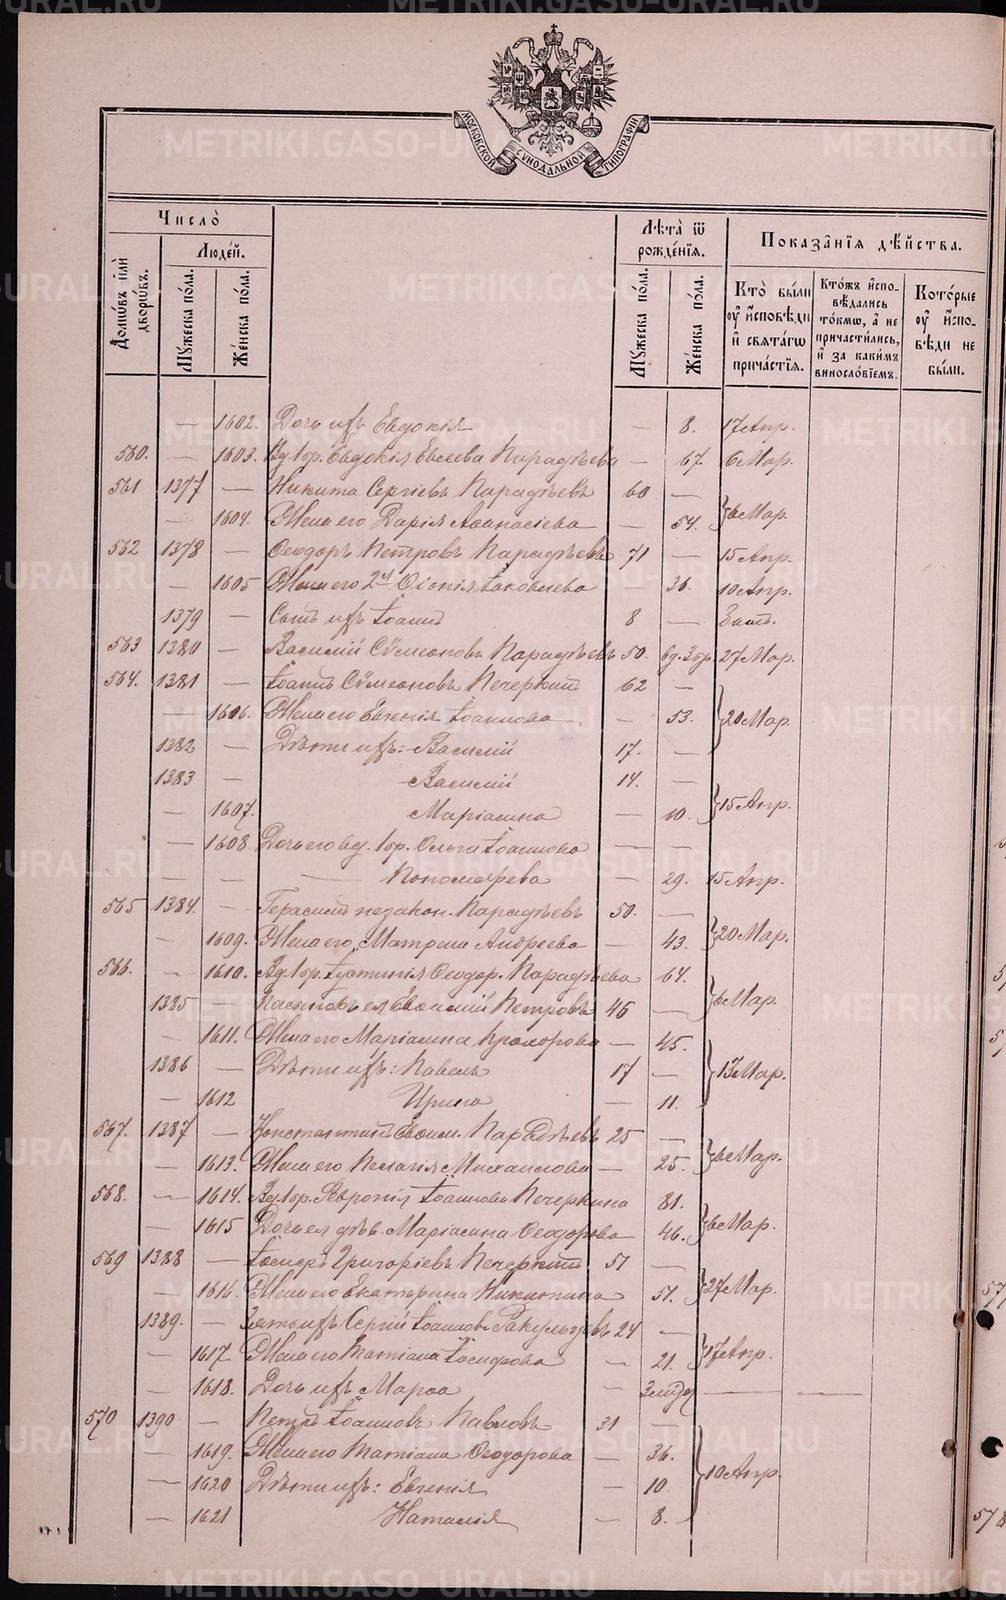 МОСКОВСКОЙ СѴНОДАЛЬНОЙ ТИПОГРАФІИ
Число̀
Домѡвъ и҆лѝ дворѡвъ.
Люде́й.
Мꙋжеска по́ла.
Же́нска по́ла.
Лѣ́та ѿ рожде́нїѧ.
Мꙋжеска по́ла.
Же́нска по́ла.
Показа̑нїѧ дѣ́йства.
Кто̀ бы́ли ᲂу҆ и҆сповѣди и҆ свѧта́гѡ прича́стїѧ.
Кто́жъ и҆спо-вѣдались то́кмѡ, а҆ не причасти́лись, и҆ за каки́мъ винослові́емъ.
Кото́рые ᲂу҆ и҆спо-вѣди не бы́ли.
— 1602. Дочь ихъ Евдокія — 8. 17 Апр.
560. — 1603. Вд. 1 бр. Евдокія Евсеева Карадѣева — 67. 6 Мар.
561 1377 — Никита Сергіевъ Карадѣевъ 60 —
— 1604. Жена его Дарія Аѳанасіева — 54. } 6 Мар.
562 1378 — Ѳеодоръ Петровъ Карадѣевъ 71 — 15 Апр.
— 1605 Жена его 2й Іаковлева — 36. 10 Апр.
1379 — Сынъ ихъ Іоаннъ 8 —
563 1380 — Василій Сѵмеоновъ Карадѣевъ 50. 27 Мар.
564. 1381 — Іоаннъ Сѵмеоновъ Печеркинъ 62 —
— 1606. Жена его Евгенія Іоаннова — 53. } 20 Мар.
1382 — Дѣти ихъ: Василій 17. —
1383 — Василій 14. —
— 1607. Маріамна — 10. } 15 Апр.
— 1608 Дочь его вд. 1 бр. Ольга Іоаннова — —
— — — Пономарева — 29. 15 Апр.
565 1384. — Герасимъ незакон. Карадѣевъ 50. —
— 1609. Жена его, Матрена Андреева — 43. } 20 Мар.
566. — 1610. Вд. 1 бр. Іустинія Ѳеодор. Карадѣева 64.
1385 — Пасынокъ ея Петровъ 46 — } 6 Мар.
— 1611. Жена его Маріамна Прохорова — 45.
1386 — Дѣти ихъ: Павелъ 17 — } 13 Мар.
— 1612 Ирина — 11.
567. 1387 — Константинъ Карадѣевъ 25 —
— 1613. Жена его Пелагія Михаилова — 25. } 6 Мар.
568. — 1614. Вд. 1 бр. Февронія Іоаннова Печеркина 81.
— 1615 Дочь ея дѣв. Маріамна Ѳеодорова — 46. } 6 Мар.
569 1388 — Іосифъ Григоріевъ Печеркинъ 51 —
— 1616. Жена его Екатерина Никитина — 51. } 27 Мар.
1389. — Зять ихъ Сергій Іоаннов. 24 —
— 1617. Жена его Татіана Іосифова — 21. } 17 Апр.
— 1618. Дочь ихъ Марѳа —
570 1390 — Петръ Іоанновъ Павловъ 31 —
— 1619. Жена его Татіана Ѳеодорова — 36.
— 1620 Дѣти ихъ: Евгенія — 10. } 10 Апр.
— 1621 Наталія — 8.
METRIKI.GASO-URAL.RU